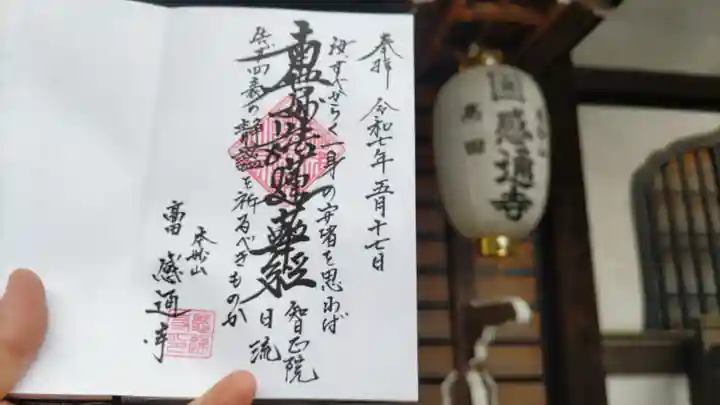 奉拝 令和七年五月十七日
汝すべからく一身の安堵を思わば
先ず四表の静謐を祈るべきものか
南無妙法蓮華経
智正院
日流
高田
本妙山
感通寺
高田
感通寺